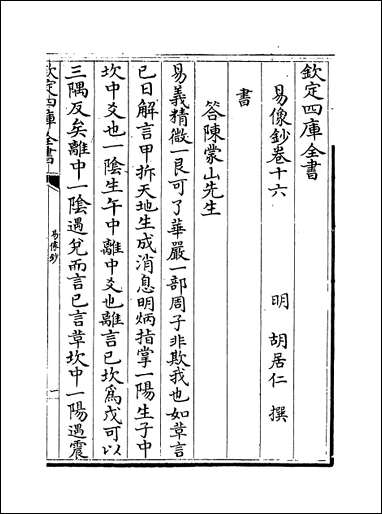 欽定四庫全書
易像鈔卷十六
明 胡居仁 撰
書
答陳蒙山先生
易義精微一艮可了華嚴一部周子非欺我也如革言
已日解言甲拆天地生成消息明炳指掌一陽生子中
坎中爻也一陰生午中離中爻也離言已坎為戊可以
三隅反矣離中一陰遇兌而言已言革坎中一陽遇震
欽定四庫全書
易像鈔
一